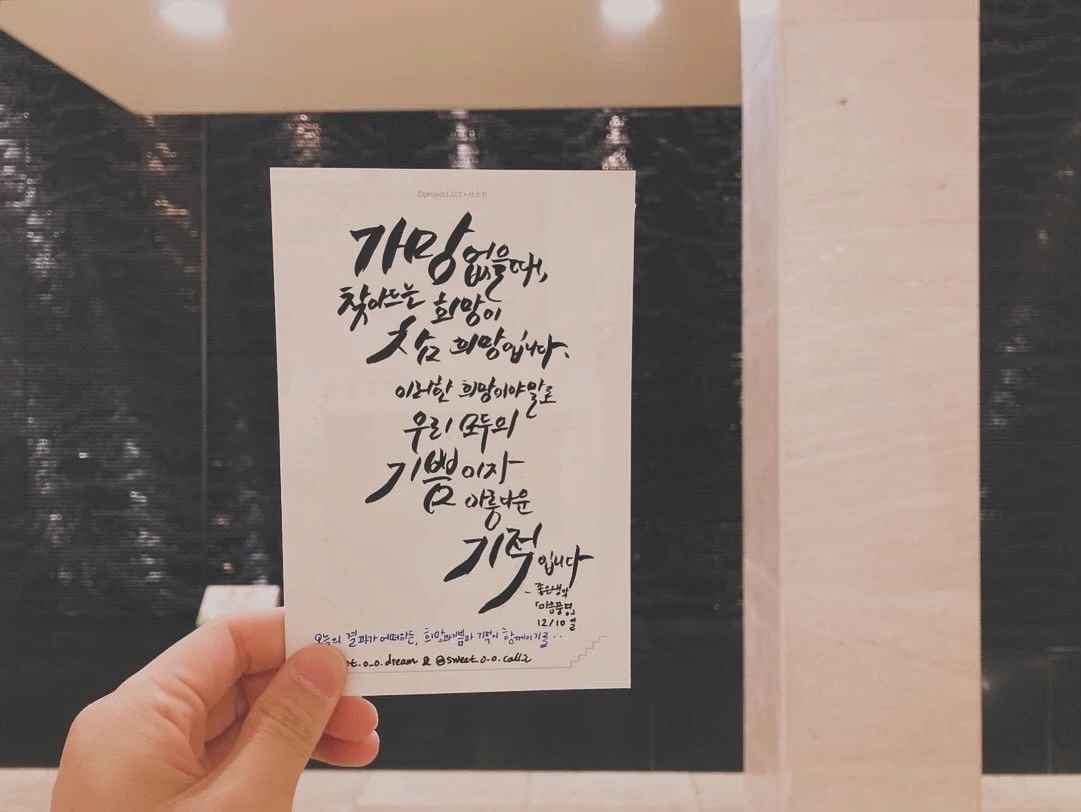 ©project L.I.T • 사소한
가망 없을 때,
찾아드는 희망이
참 희망입니다.
이러한 희망이야말로
우리 모두의
기쁨이자
아름다운
기적입니다
- 좋은생각
「마음풍경」
12/10
오늘의 결과가 어떠하든, 희망과 기쁨과 기적이 함께이기를..
t.o.o.dream & @sweet.o.o.calli